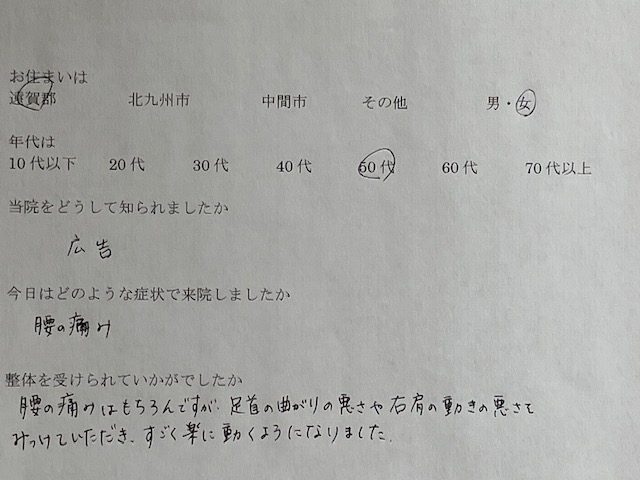 お住まいは
遠賀郡 北九州市 中間市 その他 男・女
年代は
10代以下 20代 30代 40代 50代 60代 70代以上
当院をどうして知られましたか
広告
今日はどのような症状で来院しましたか
腰の痛み
整体を受けられていかがでしたか
腰の痛みはもちろんですが、足首の曲がりの悪さや右肩の動きの悪さも
みつけていただき、すごく楽に動くようになりました。